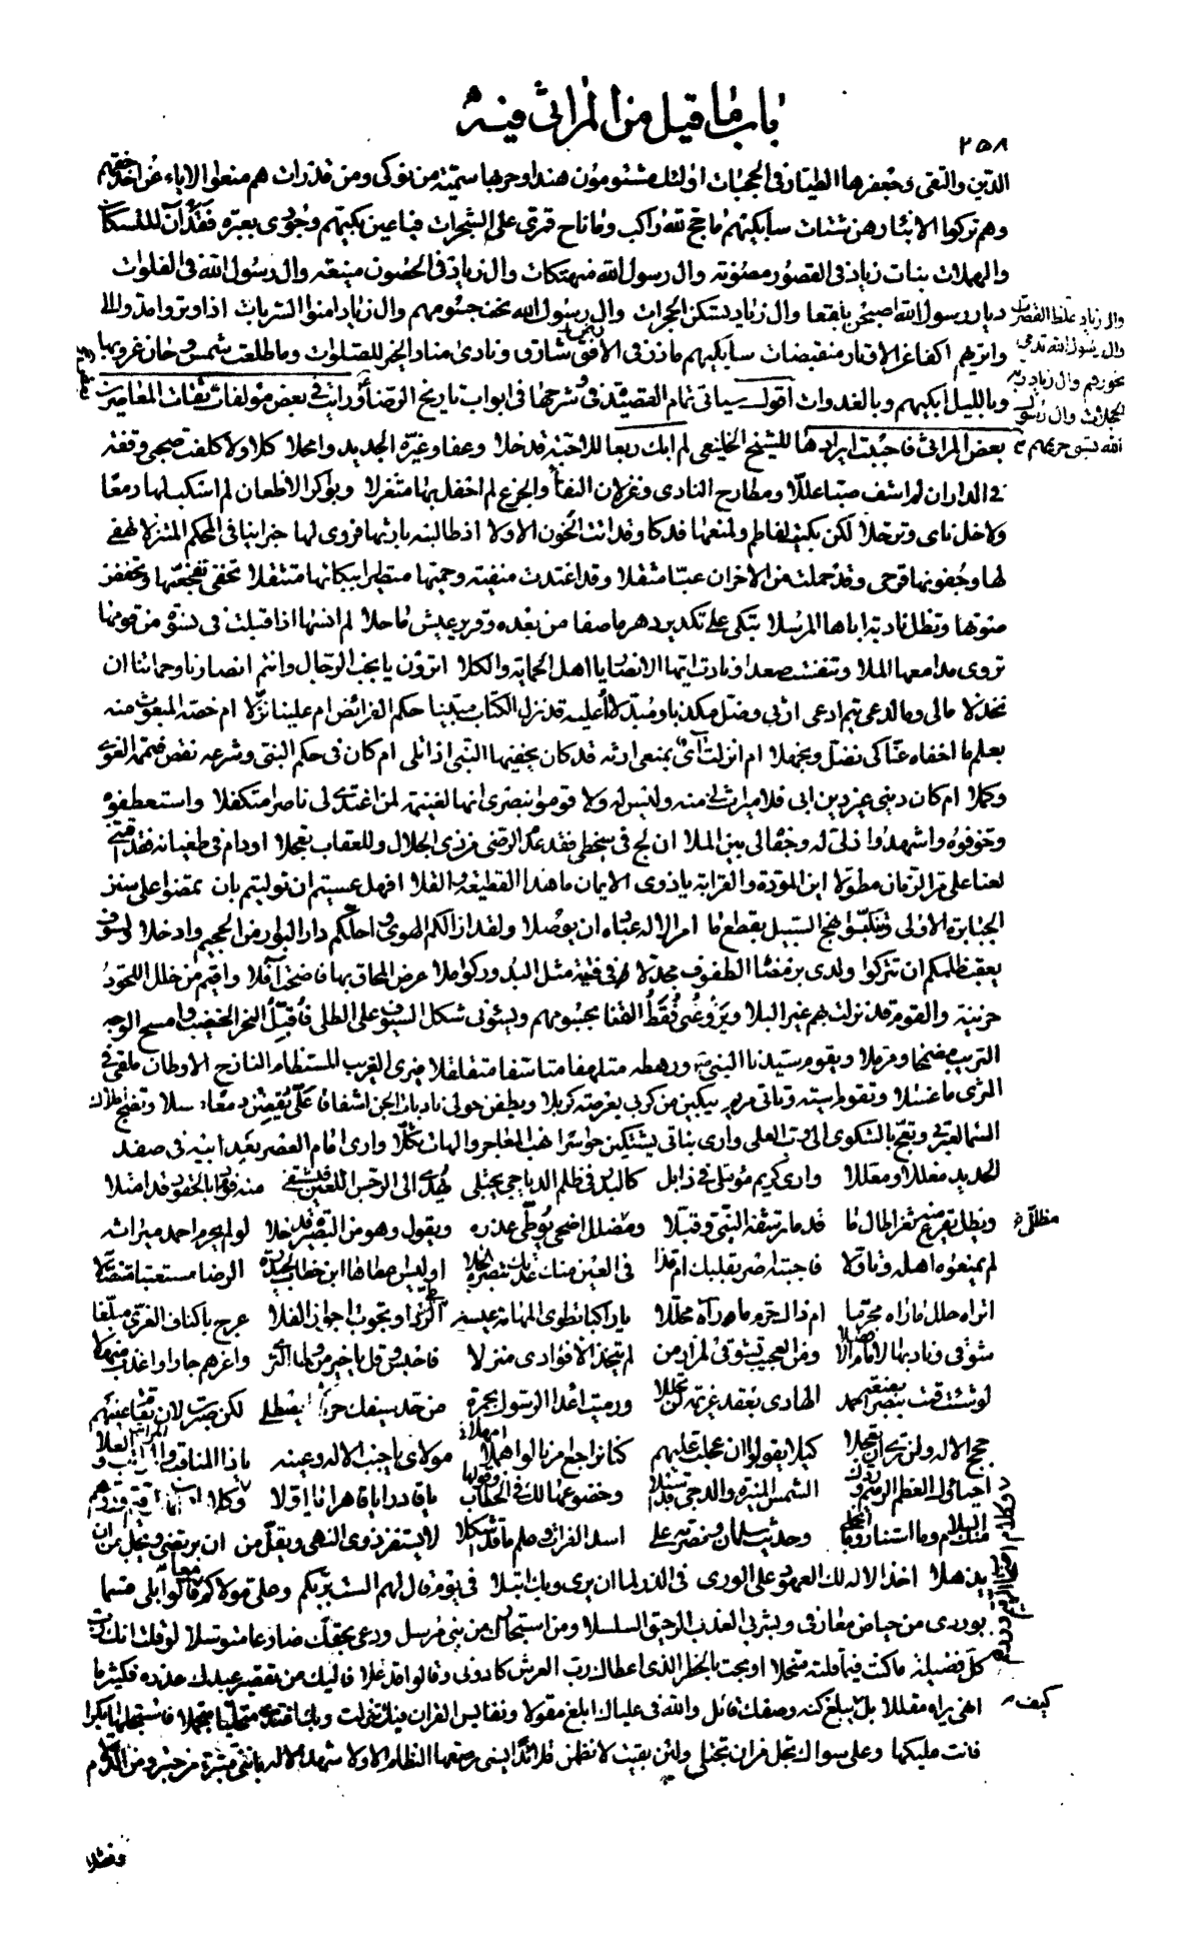 باب ما قيل من المراثى فيه
٢٥٨
الدين والتقى وجعفرها الطيار فى الحجبات اولئك مشئومون هندا وحربها سمية من نوكى ومن قذرات هم منعوا الاباء عن اخذ حقهم
وهم تركوا الابناء رهن شتات سابكيهم ما حج لله راكب وما ناح قمرى على الشجرات فيا عين بكيهم وجودى بعبرة فقد آن للتسكاب
والهملات بنات زياد فى القصور مصونة وال رسول الله منهتكات وال زياد فى الحصون منيعة وال رسول الله فى الفلوات
ديار رسول الله اصبحن بلقعا وال زياد تسكن الحجرات وال رسول الله نحف جسومهم وال زياد امنوا السربات اذا وتروا مدوا الى
واتريهم اكفا عن الاوتار منقبضات سابكيهم ما ذر فى الافق شارق ونادى مناد الخير للصلوات وما طلعت شمس وحان غروبها
وبالليل ابكيهم وبالغدوات اقول سياتى تمام القصيدة وشرحها فى ابواب تاريخ الرضا ورايت فى بعض مؤلفات ثقات المعاصرين
بعض المراثى فاحببت ايرادها للشيخ الخليعى لم ابك ربعا للاحبة قد خلا وعفا وغيره الجديد وامحلا كلا ولا كلفت صحبى وقفة
فى الدار ان لم اشف صبا عللا ومطارح النادى وغزلان النقا والجزع لم احفل بها متغزلا وبواكر الاظعان لم اسكب لها دمعا
ولا خل ناى وترحلا لكن بكيت لفاطم ولمنعها فدكا وقد اتت الخؤن الاولا اذ طالبته بارثها فروى لها خبرا ينافى المحكم المنزلا لهفى
لها وجفونها قرحى وقد حملت من الاحزان عبئا مثقلا وقد اغتدت منفية وحميها متطيرا ببكائها متثقلا تخفى تفجعها وتخفض
صوتها وتظل نادبة اباها المرسلا تبكى على تكدير دهر ما صفا من بعده وقرير عيش ما حلا لم انسها اذ اقبلت فى نسوة من قومها
تروى مدامعها الملا وتنفست صعدا ونادت ايها الانصار يا اهل الحماية والكلا اترون يا نجب الرجال وانتم انصارنا وحماتنا ان
نخذلا مالى وما لدعى تيم ادعى ارثى وضل مكذبا ومبدلا اعليه قد نزل الكتاب مبينا حكم الفرائض ام علينا نزلا ام خصه المبعوث منه
بعلم ما اخفاه عنا كى نضل ونجهلا ام انزلت آى بمنعى ارثه قد كان يخفيها النبى اذا تلى ام كان فى حكم النبى وشرعه نقص فتممه الغوى
وكملا ام كان دينى غير دين ابى فلا ميراث لى منه وليس له ولا قوموا بنصرى انها لغنيمة لمن اغتدى لى ناصرا متكفلا واستعطفوه
وخوفوه واشهدوا ذلى له وجفاه لى بين الملا ان لج فى سخطى فقد عدم الرضى من ذى الجلال وللعقاب تعجلا او دام فى طغيانه فقد اقتنى
لعنا على مر الزمان مطولا اين المودة والقرابة يا ذوى الايمان ما هذا القطيعة والقلا افهل عسيتم ان توليتم بان تمضوا على سنن
الجبابرة الاولى وتنكبوا نهج السبيل بقطع ما امر الاله عباده ان يوصلا ولقد ازالكم الهوى واحلكم دار البوار من الجحيم وادخلا ولسوف
يعقب ظلمكم ان تتركوا ولدى برمضاء الطفوف مجدلا فى فتية مثل البدور كواملا عرض المحاق بها فاضحت افلا واقوم من خلل اللحود
حزينة والقوم قد نزلت بهم غير البلا ويروعنى نقط القنا بجسومهم ويسوئنى شكل السيوف على الطلى فاقبل النحر الخضيب وامسح الوجه
التريب مضمخا ومرملا ويقوم سيدنا النبى ورهطه متلهفا متاسفا متقلقلا فيرى الغريب المستظام النازح الاوطان ملقى فى
الثرى ما غسلا وتقوم اسية وتاتى مريم يبكين من كربى بعرصة كربلا ويطفن حولى نادبات الجن اشفاقا على يفضن دمعا مسبلا وتضج املاك
السما لعبرتى وتعج بالشكوى الى رب العلى وارى بناتى يشتكين حواسرا نهب المعاجر والهات ثكلا وارى امام العصر بعد ابيه فى صفد
الحديد مغللا ومعللا وارى كريم مؤملى فى ذابل كالبدر فى ظلم الدياجى يجتلى يهدى الى الرجس اللعين فيشتفى منه فؤاد بالحقود قد امتلا
ويظل يقرع منه ثغرا طال ما قدما ترشفه النبى وقبلا ومضلل اضحى يوطى عذره ويقول وهو من البصيرة قد خلا لو لم يحرم احمد ميراثه
لم يمنعوه اهله وتاولا فاجبته اصر بقلبك ام قذا فى العين منك عدتك تبصرة الجلا اوليس اعطاها ابن خطاب لحيدرة الرضا مستعتبا متنصلا
اتراه حلل ما راه محرما ام ذاك حرم ما راه محللا يا راكبا تطوى المهامه عيسه طى الردا وتجوب اجواز الفلا عرج باكناف الغرى مبلغا
شوقى وناد بها الامام الافضلا ومن العجيب تشوقى لمزار من لم يتخذ الا فؤادى منزلا فاحبس وقل يا خير من وطا الثرى واعزهم جارا واعذب منهلا
لو شئت قمت بنصر بضعة احمد الهادى بعقد عزيمة لن تحللا ورميت اعداء الرسول بجمرة من حد سيفك حرها لا يصطلى لكن صبرت لان تقام عليهم
حجج الاله ولن ترى ان تعجلا كيلا يقولوا ان عجلت عليهم كنا نراجع امرنا لو امهلا مولاى يا جنب الاله وعينه يا ذا المناقب والمراتب والعلا
احيائك العظم الرميم وردك الشمس المنيرة والدجى قد اسبلا وخضوعها لك فى الخطاب وقولها يا قادرا يا قاهرا يا اولا وكلام اصحاب الرقيم وردهم
منك السلام وما استنار وما انجلى وحديث سلمان ونصرته على اسد الفرات وعلم ما قد اشكلا لا يستفز ذوى النهى ويقل من ان يرتضى ويجل من ان
يذهلا اخذ الاله لك العهود على الورى فى الذر لما ان برى وبك ابتلا فى يوم قال لهم الست بربكم وعلى مولاكم معا قالوا بلى قسما
بوردى من حياض معارفى وبشربى العذب الرحيق السلسلا ومن استجارك من نبى مرسل ودعى بحقك ضارعا متوسلا لو قلت انك رب
كل فضيلة ما كنت فيما قلته متنحلا او بحت بالخطر الذى اعطاك رب العرش كادونى وقالوا قد غلا فاليك من تقصير عبدك عذره فكثير ما
انهى يراه مقللا بل يبلغ كنه وصفك قائل والله فى علياك ابلغ مقولا ونفايس القران فيك تنزلت وبك اغتدى متحليا متجملا فاستجلها بكرا
فانت مليكها وعلى سواك تجل من ان تجتلى ولئن بقيت لانظمن قلائدا ينسى ترصيعها النظام الاولا شهد الاله باننى متبرء من حبتر ومن الدلام
ونعثلا
وال زياد غلظ القصرات
وال رسول الله تدمى
نحورهم وال زياد ربة
الحجلات وال رسول
الله تسبى حريمهم
مظلل
كيف